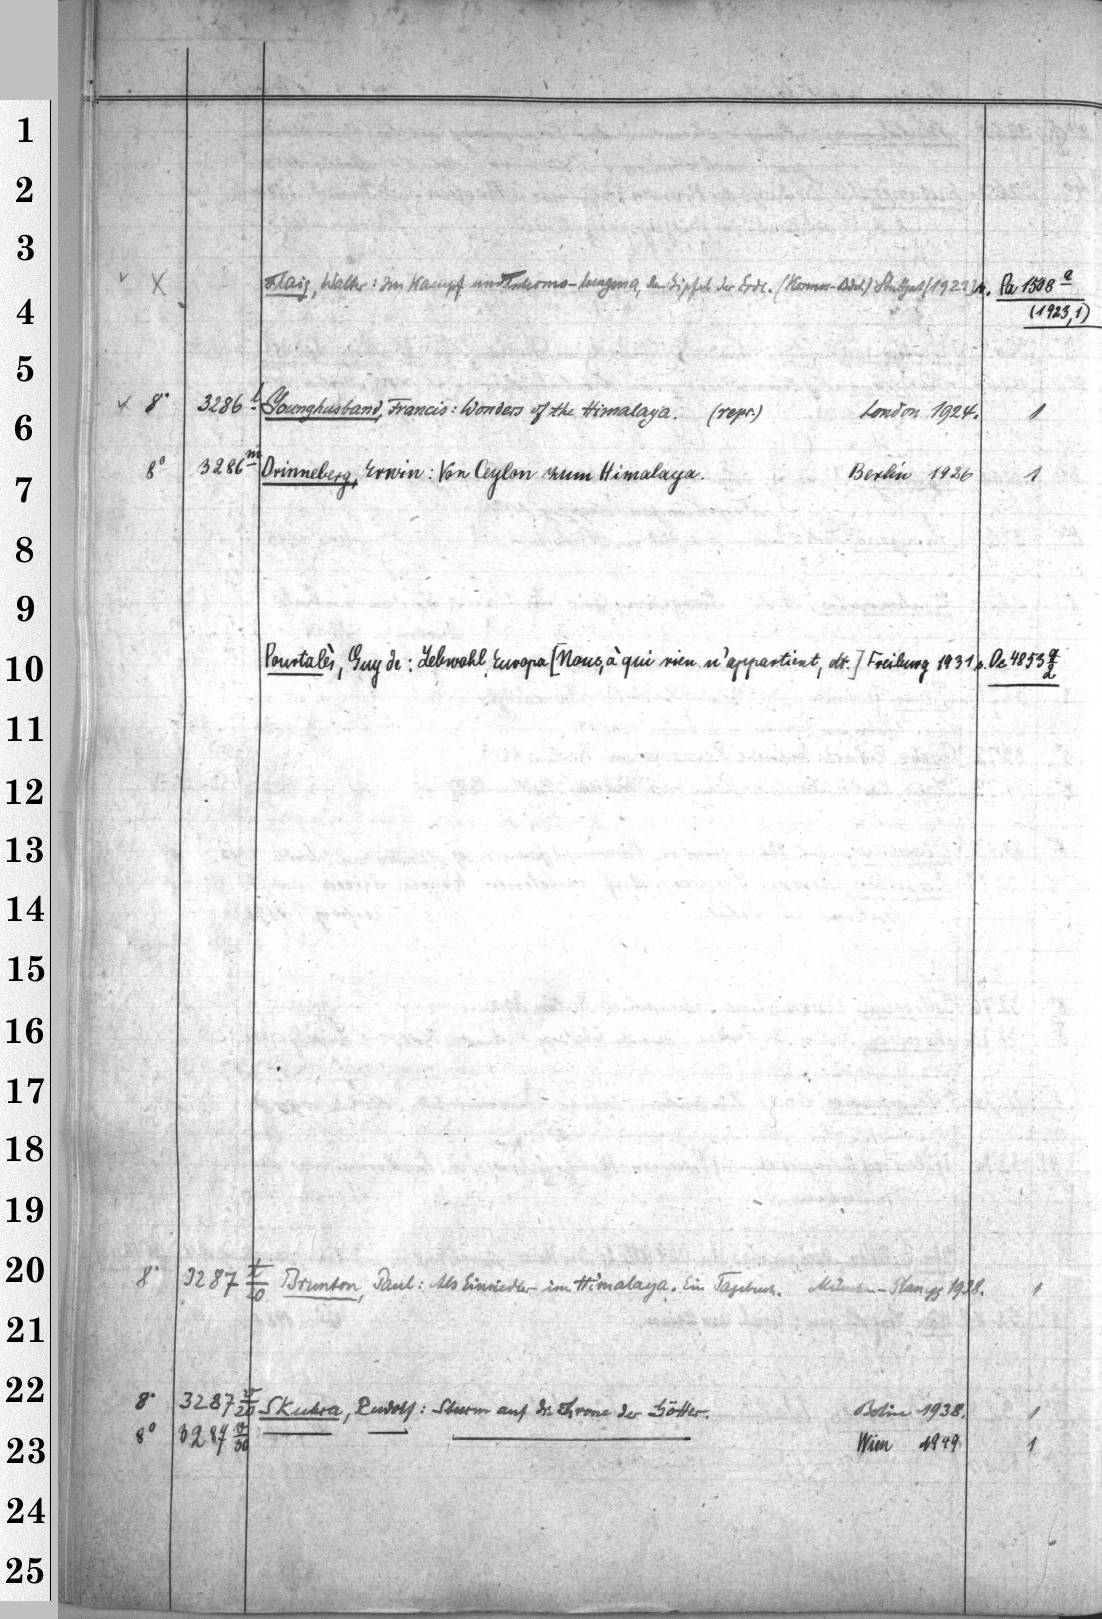 1
2
3
Flaig, Walter: Im Kampf um Tschomo-lungma, den Gipfel der Erde. (Kosmos-Bdch) Stuttgart (1923) s. Pa 1508 a
4 (1923,1)
5
8° 3286 l Younghusband, Francis: Wonders of the Himalaya. (repr.) London 1924. 1
6
8° 3286 m Drinneberg, Erwin: Von Ceylon zum Himalaya. Berlin 1926 1
7
8
9
10 Pourtalès, Guy de: Lebwohl Europa [Nous, à qui rien n'appartient, dt.] Freiburg 1931 s. Dc 4853 a/2
11
12
13
14
15
16
17
18
19
20
8° 3287 /20 Brunton, Paul: Als Einsiedler im Himalaya. Ein Tagebuch. München-Planegg 1938. 1
21
22
8° 3287 v/20 Skuhra, Rudolf: Sturm auf die Throne der Götter. Berlin 1938. 1
23 8° 3287 v/30 Wien 1949 1
24
25